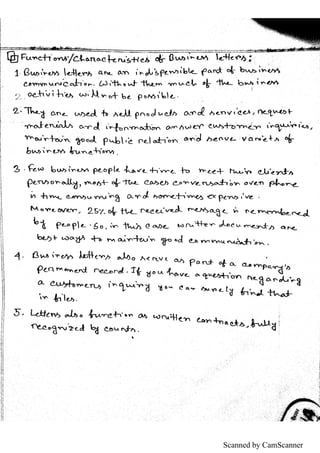 Functions/Characteristics of Business letters:
1. Business letters are an indispensible part of business
communication. Without them much of the business
activities will not be possible.
2. They are used to sell products and services, request
materials and information answer customer inquiries,
maintain good public relation and serve variets of
business functions.
3. Few business people have time to meet their clients
personally, most of the cases conversation over phone
is time consuming and sometimes expensive.
Moreover, 25% of the received message is remembered
by people. So, in this case written documents are
best ways to maintain good communication.
4. Business letters also serve as part of a company's
permanent record. If you have a question regarding
a customers inquiry you can surely find that
in files.
5. Letters also function as written contracts, fully
recognized by courts.
Scanned by CamScanner